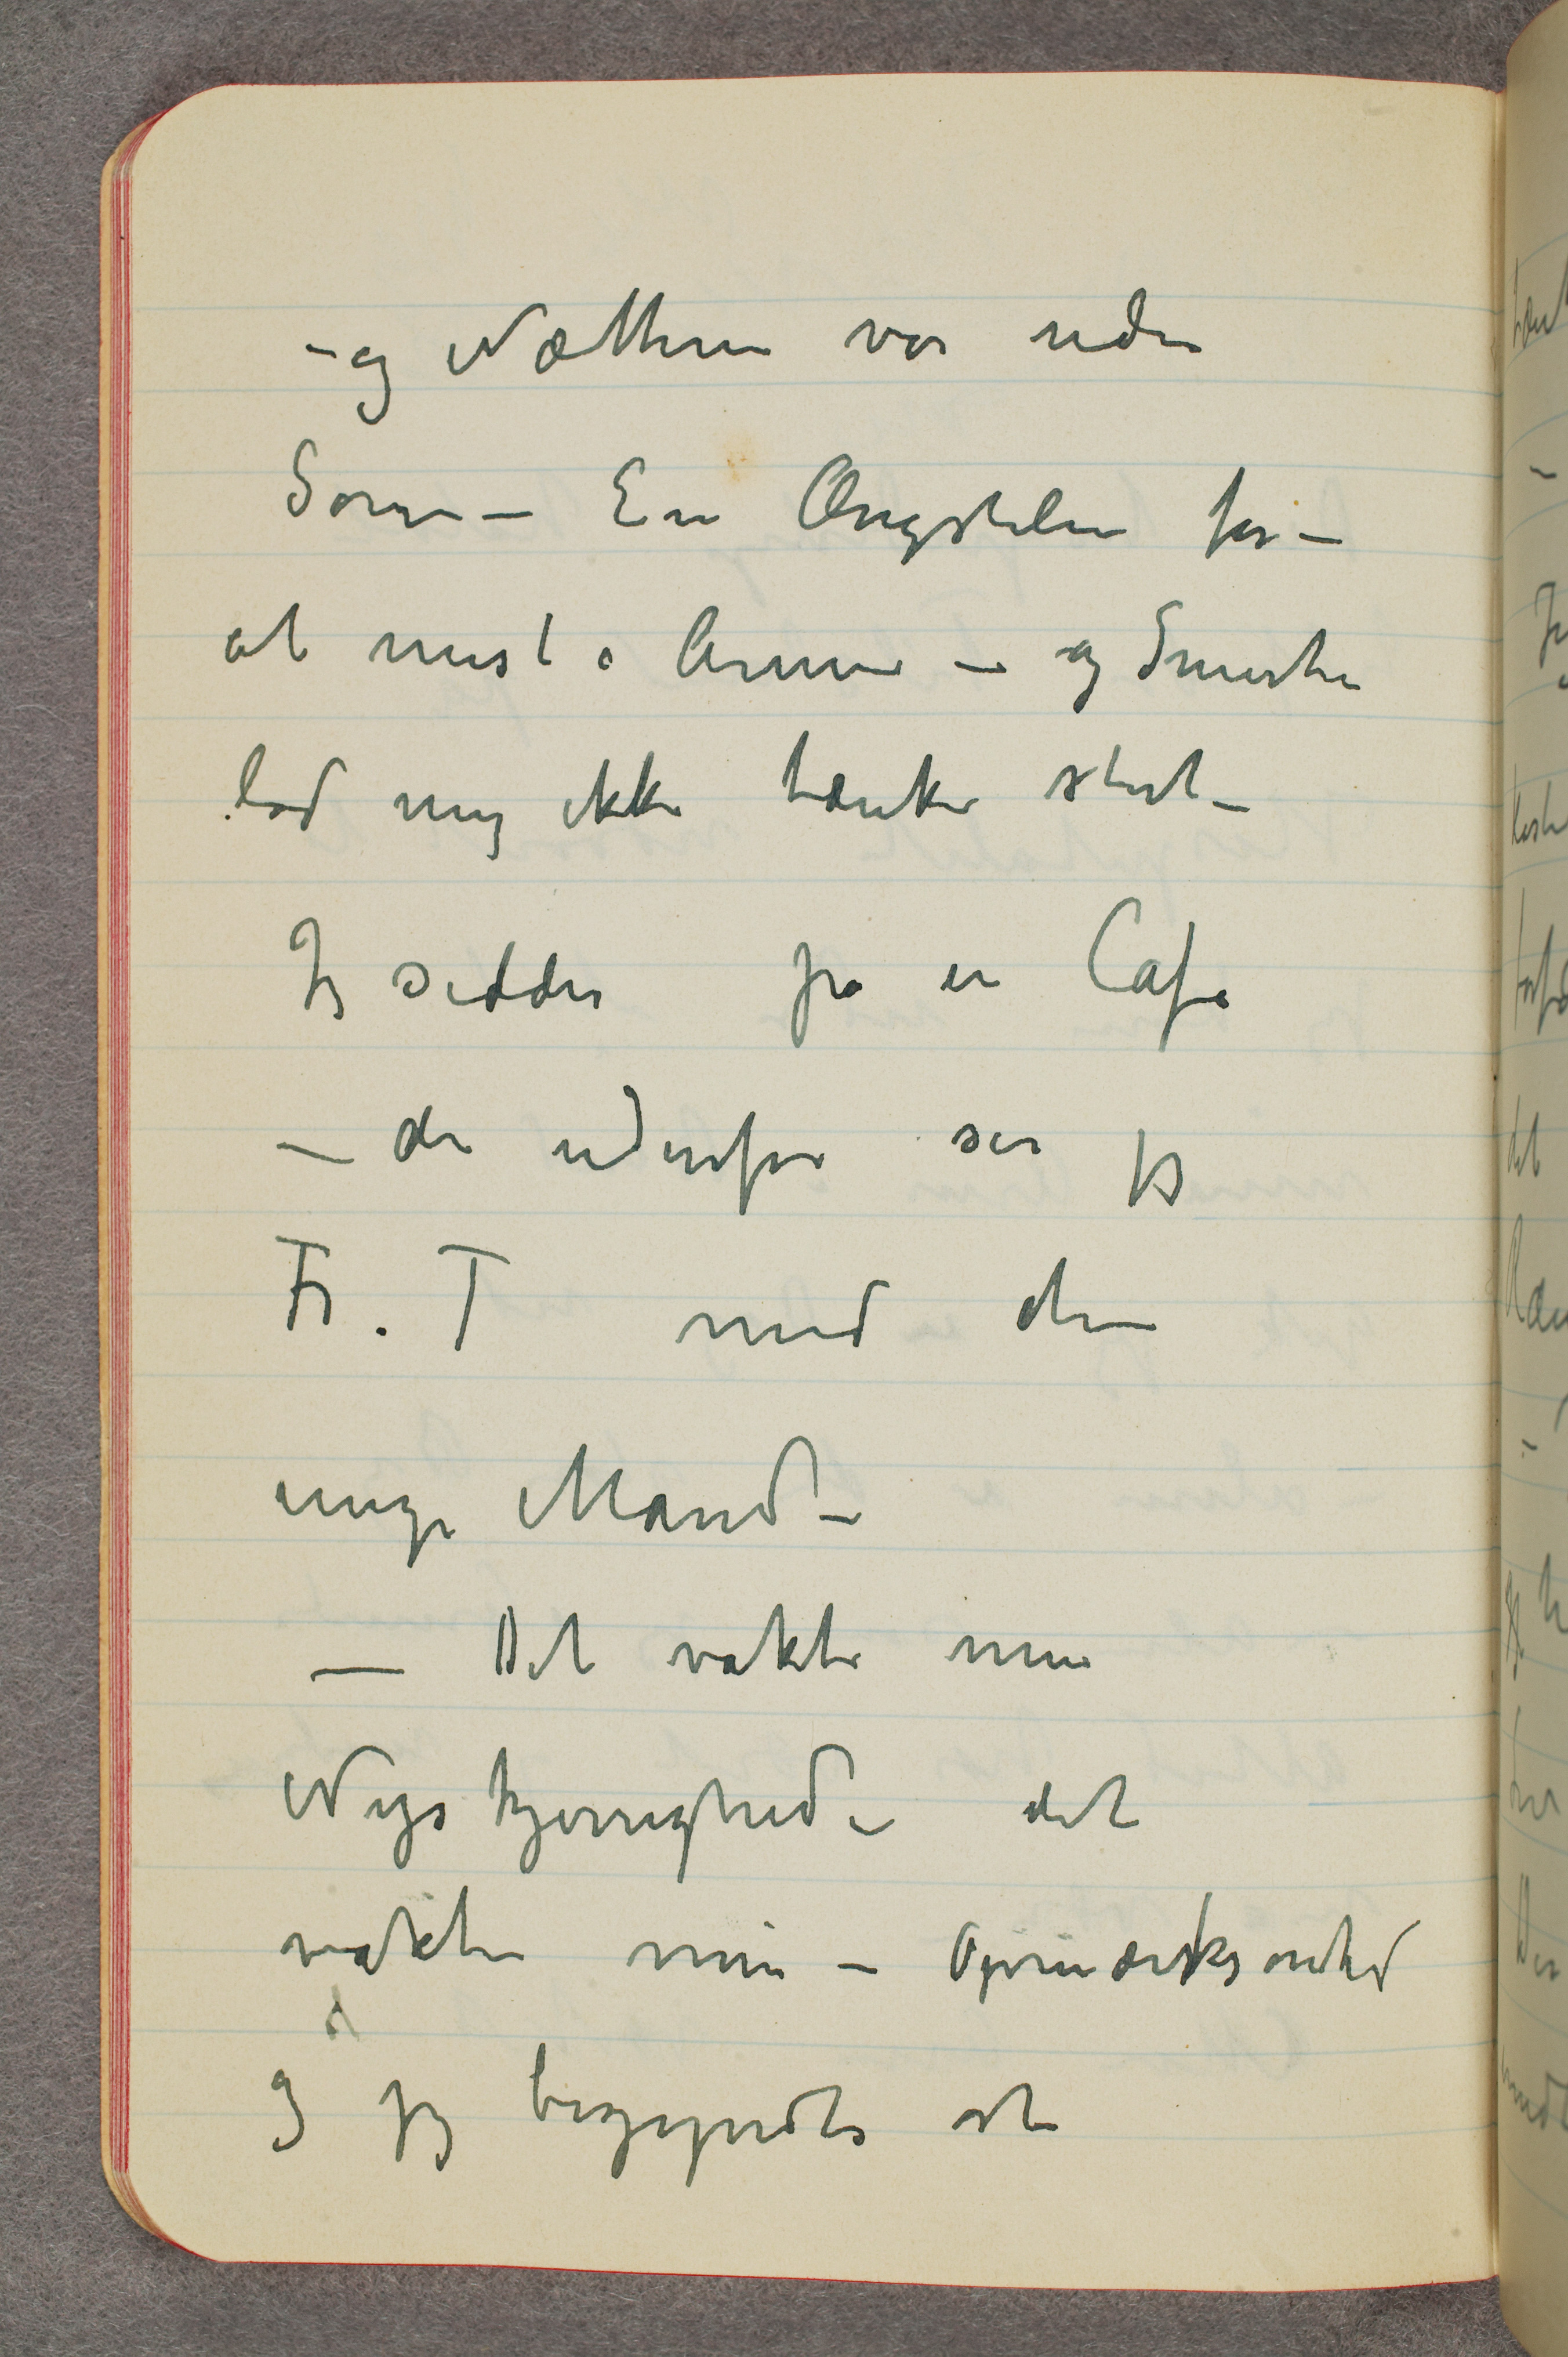 – og Nætterne var uden
Søvn – En Ængstelse for –
at miste Armen – og Smerten
lod mig ikke tænke stort –
Jeg sidder på en Café
– der udenfor ser jeg
Fr. T med den
unge Mand –
– Det vakte min
Nyskjerrighed – det
vakte min – Opmærksomhed
og jeg begyndte at